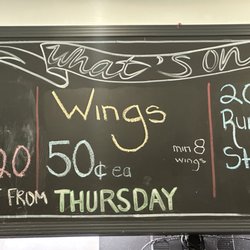 What's on
Wings
20
50¢ ea
min 8
wings
20
Ru
St
T FROM THURSDAY